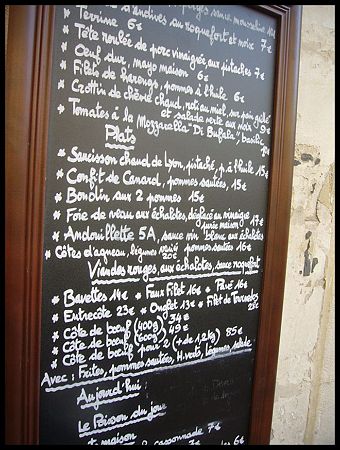 sauce mousseline 10€
* Terrine 6€
d'andives au roquefort et noix 7€
* Tête roulée de porc vinaigrée aux pistaches 7€
* Oeuf dur, mayo maison 6€
* Filets de harengs, pommes à l'huile 6€
* Crottin de chèvre chaud, roti au miel, sur pain grillé
et salade verte aux noix 9€
* Tomates à la Mozzarella "Di Bufala" basilic
Plats
* Saucisson chaud de Lyon, pistaché, p. à l'huile 15€
* Confit de Canard, pommes sautées, 15€
* Boudin aux 2 pommes 15€
* Foie de veau aux échalotes, déglacé au vinaigre
purée maison 17€
* Andouillette 5A, sauce vin blanc aux échalotes
* Côtes d'agneau, légumes pommes sautées 16€
Viandes rouges, aux échalotes, sauce roquefort
* Bavettes 14€ * Faux Filet 16€ * Pavé 16€
* Entrecôte 23€ * Onglet 13€ * Filet de Tournedos
23€
* Côte de boeuf (400g) 34€
* Côte de boeuf (600g) 49€
* Côte de boeuf pour 2 (+ de 1,2kg) 85€
Avec : Frites, pommes sautées, H. verts, légumes, salade
Aujourd'hui :
Le Poisson du jour
maison 7€
cassonnade 7€
6€